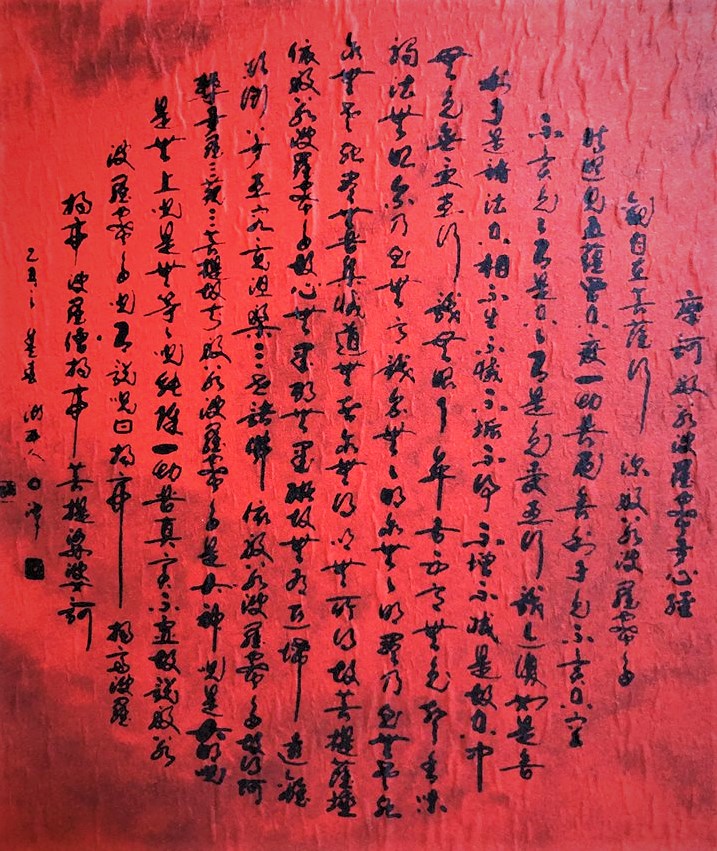 摩訶般若波羅蜜多心經
觀自在菩薩行深般若波羅蜜多
時照見五蘊皆空度一切苦厄舍利子色不異空空
不異色色即是空空即是色受想行識亦復如是舍
利子是諸法空相不生不滅不垢不淨不增不減是故空中
無色無受想行識無眼耳鼻舌身意無色聲香味
觸法無眼界乃至無意識界無無明亦無無明盡乃至無老死
亦無老死盡無苦集滅道無智亦無得以無所得故菩提薩埵
依般若波羅蜜多故心無罣礙無罣礙故無有恐怖遠離
顛倒夢想究竟涅槃三世諸佛依般若波羅蜜多故得阿
耨多羅三藐三菩提故知般若波羅蜜多是大神咒是大明咒
是無上咒是無等等咒能除一切苦真實不虛故說般若
波羅蜜多咒即說咒曰揭諦揭諦波羅
揭諦波羅僧揭諦菩提薩婆訶